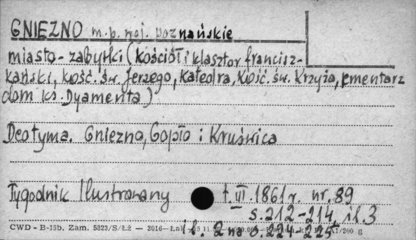 GNIEZNO m. p. woj. poznańskie
miasto - zabytki (kościół i klasztor francisz-
kański, kość. św. Jerzego, katedra, kość. św. Krzyża, cmentarz
dom ks. Dyamenta)
Deotyma. Gniezno, Gopło i Kruświca
Tygodnik Ilustrowany t. III. 1861 r. nr. 89
s. 212-214 il. 3
il. 2 na s. 224-225
CWD - B-15b. Zam. 5223/S/Łź — 2016—